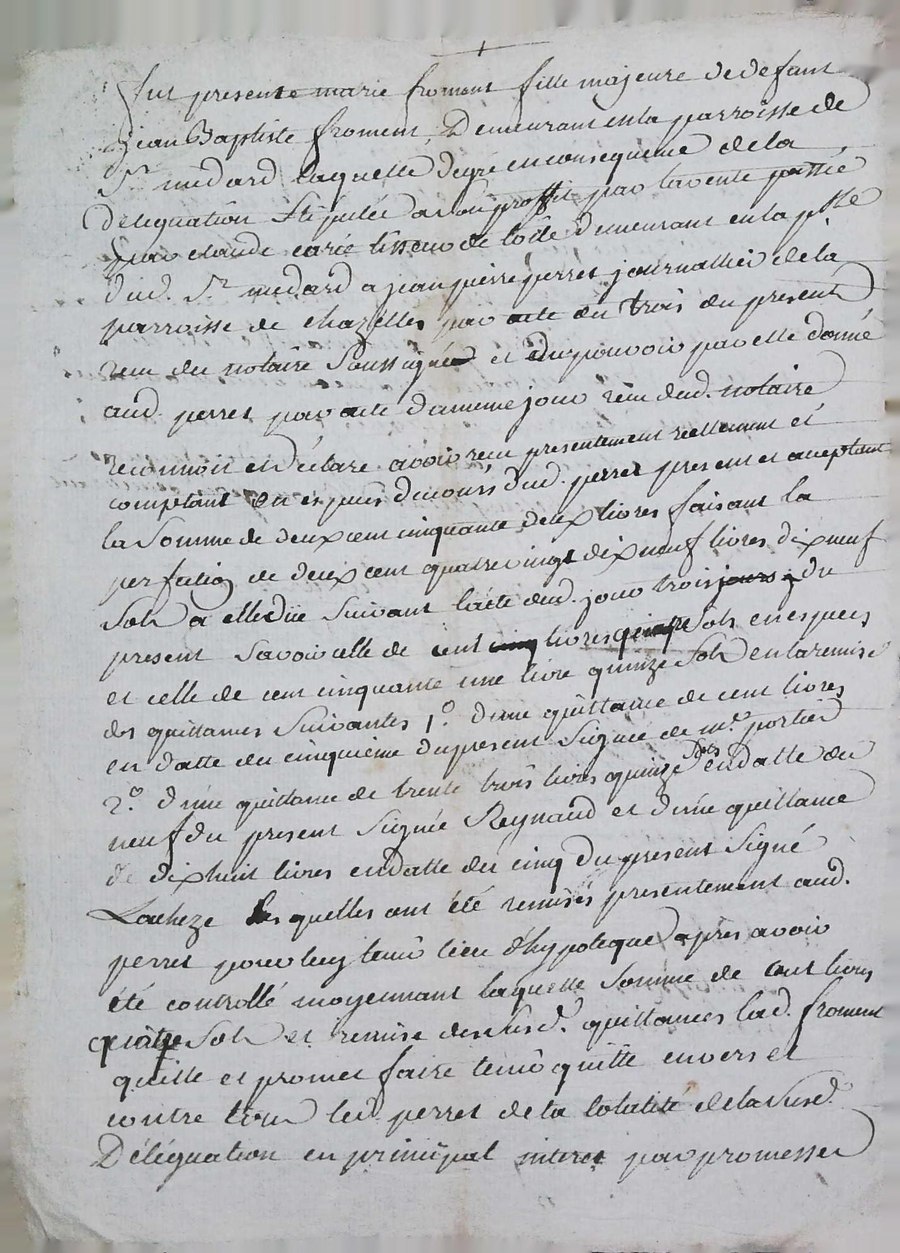 fut presente marie froment fille majeure de defunt
jean Baptiste froment, Demeurant en la parroisse de
St medard laquelle degré en consequence de la
déléguation stipulée a son proffit par la vente passée
par claude carié tisseur de toile demeurant en la psse
dud. St medard a jean pierre perret journallier de la
parroisse de chazelles par acte du trois du present
recu du notaire soussigné et du pouvoir par elle donné
aud. perret par acte du meme jour recu dud. notaire
reconnoit et déclare avoir recu presentement reellement et
comptant en especes de cours dud. perret present et acceptant
la somme de deux cent cinquante deux livres faisant la
perfection de deux cent quatre vingt dix neuf livres dix neuf
sols a elle düe suivant lacte dud. jour trois jours du
present savoir celle de cent livres sols en especes
et celle de cent cinquante une livre quinze sols en la remise
des quittances suivantes 1o. d'une quittance de cent livres
en datte du cinquieme du present signée de me. portier
2o. d'une quittance de trente trois livres quinze sols en datte du
neuf du present signée Reynaud et d'une quittance
de dix huit livres en datte du cinq du present signé
Lacheze lesquelles ont été remises presentement aud.
perret pour luy tenir lieu d'hypoteque apres avoir
été controllé moyennant laquelle somme de cent livres
quatre sols et remise des susd. quittances lad. froment
quitte et promet faire tenir quitte envers et
contre tous led. perret de la totalité de la susd.
Déléguation en principal interet par promesses